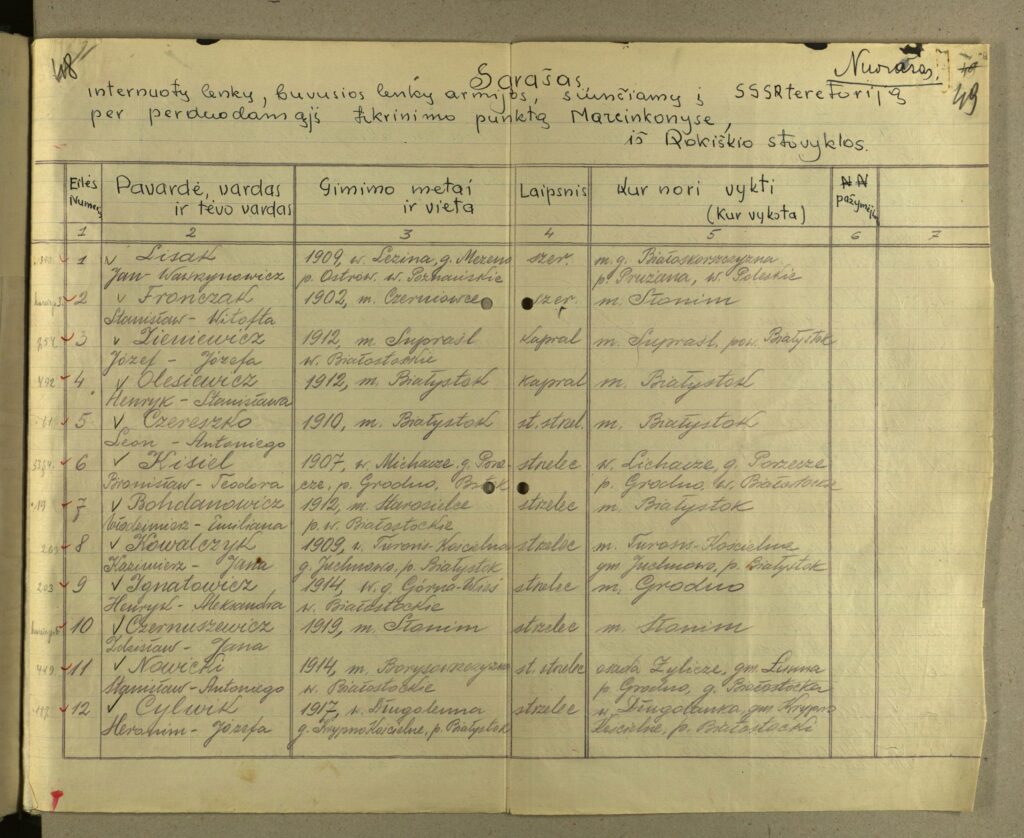 48
Nuorašas.
49
Sąrašas
internuotų lenkų, buvusios lenkų armijos, siunčiamų į SSSR teretoriją
per perduodamąjį tikrinimo punktą Marcinkonyse,
iš Rokiškio stovyklos.
Eilės Numeris Pavardė, vardas ir tėvo vardas Gimimo metai ir vieta Laipsnis Kur nori vykti (Kur vyksta) NN pažymėjimo
1 2 3 4 5 6 7
1 v Lisak 1909, w. Lezina, g. Mezeno szer. m. g. Białoskorszczyzna
Jan- p. Ostrów, w. Poznańskie p. Prużana, w. Poleskie
2 v Fronczak 1902, m. Czerniowce szer. m. Słonim
Stanisław- Witolta
3 v Zieniewicz 1912, m. Supraśl kapral m. Supraśl, pow. Białystok
Józef - Józefa w. Białostockie
4 v Olesiewicz 1912, m. Białystok kapral m. Białystok
Henryk- Stanisława
5 v Czereszko 1910, m. Białystok st. strzel. m. Białystok
Leon - Antoniego
6 v Kisiel 1907, w. Michacze, g. Porze- strzelec w. Lichacze, g. Porzecze
Bronisław- Teodora cze, p. Grodno, p. Grodno, w. Białostockie
7 v Bohdanowicz 1912, m. Starosielce strzelec m. Białystok
Włodzimierz- Emiliana p. w. Białostockie
8 v Kowalczyk 1909, w. Turons-Koscielna strzelec m. Turons-Koscielne
Kazimierz - Jana g. Juchnowo, p. Białystok gm. Juchnowo, p. Białystok
203 9 v Ignatowicz 1914, w. g. Górna-Wieś strzelec m. Grodno
Henryk- Aleksandra w. Białostockie
10 v Czernuszewicz 1919, m. Słonim strzelec m. Słonim
Zdzisław- Jana
419 11 v Nowicki 1914, m. st. strzelec osada Żylicze, gm.
Stanisław- Antoniego w. Białostockie p. Grodno, g. Białostocka
12 v Cylwik 1917, w. Długołenna strzelec w. Długołanka, gm. Krypno
Heronim- Józefa g. Krypno Kościelne, p. Białystok Kościelne, p. Białostocki